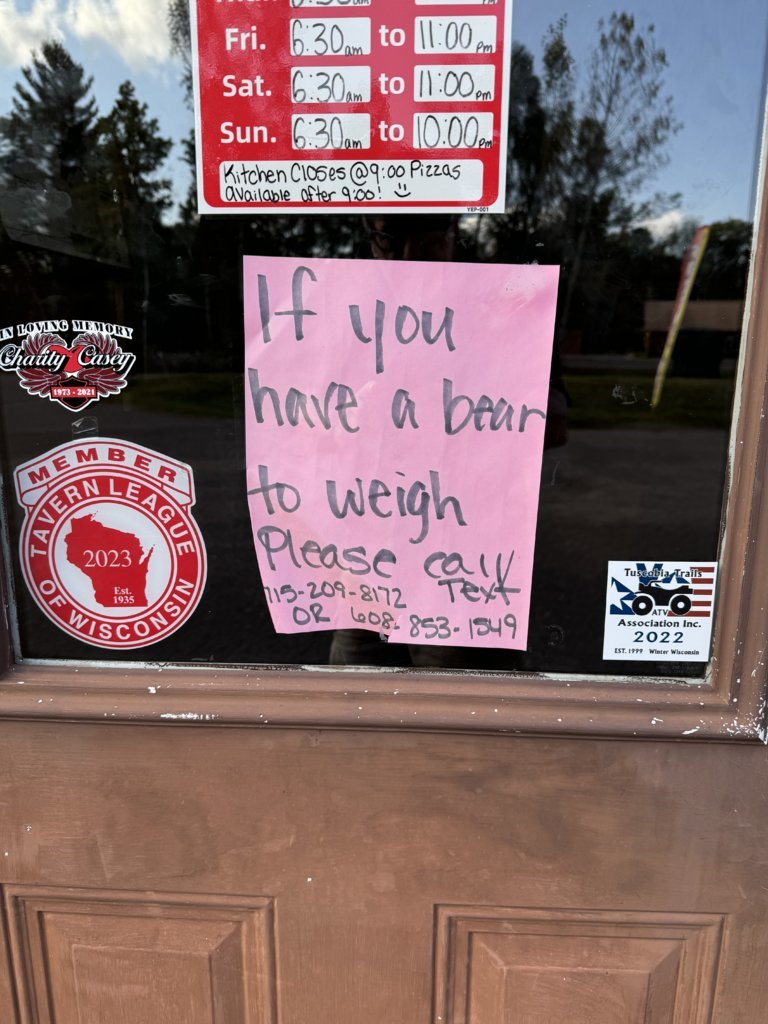 Fri. 6:30am to 11:00pm
Sat. 6:30am to 11:00pm
Sun. 6:30am to 10:00pm
Kitchen Closes @ 9:00 Pizzas
available after 9:00! :)
YRP-001
If you
have a bear
to weigh
Please call/
Text
715-209-8172
OR 608-853-1549
IN LOVING MEMORY
Charity Casey
1973 - 2021
MEMBER
TAVERN LEAGUE
2023
Est.
1935
OF WISCONSIN
Tuscobia Trails
ATV
Association Inc.
2022
EST. 1999 Winter Wisconsin